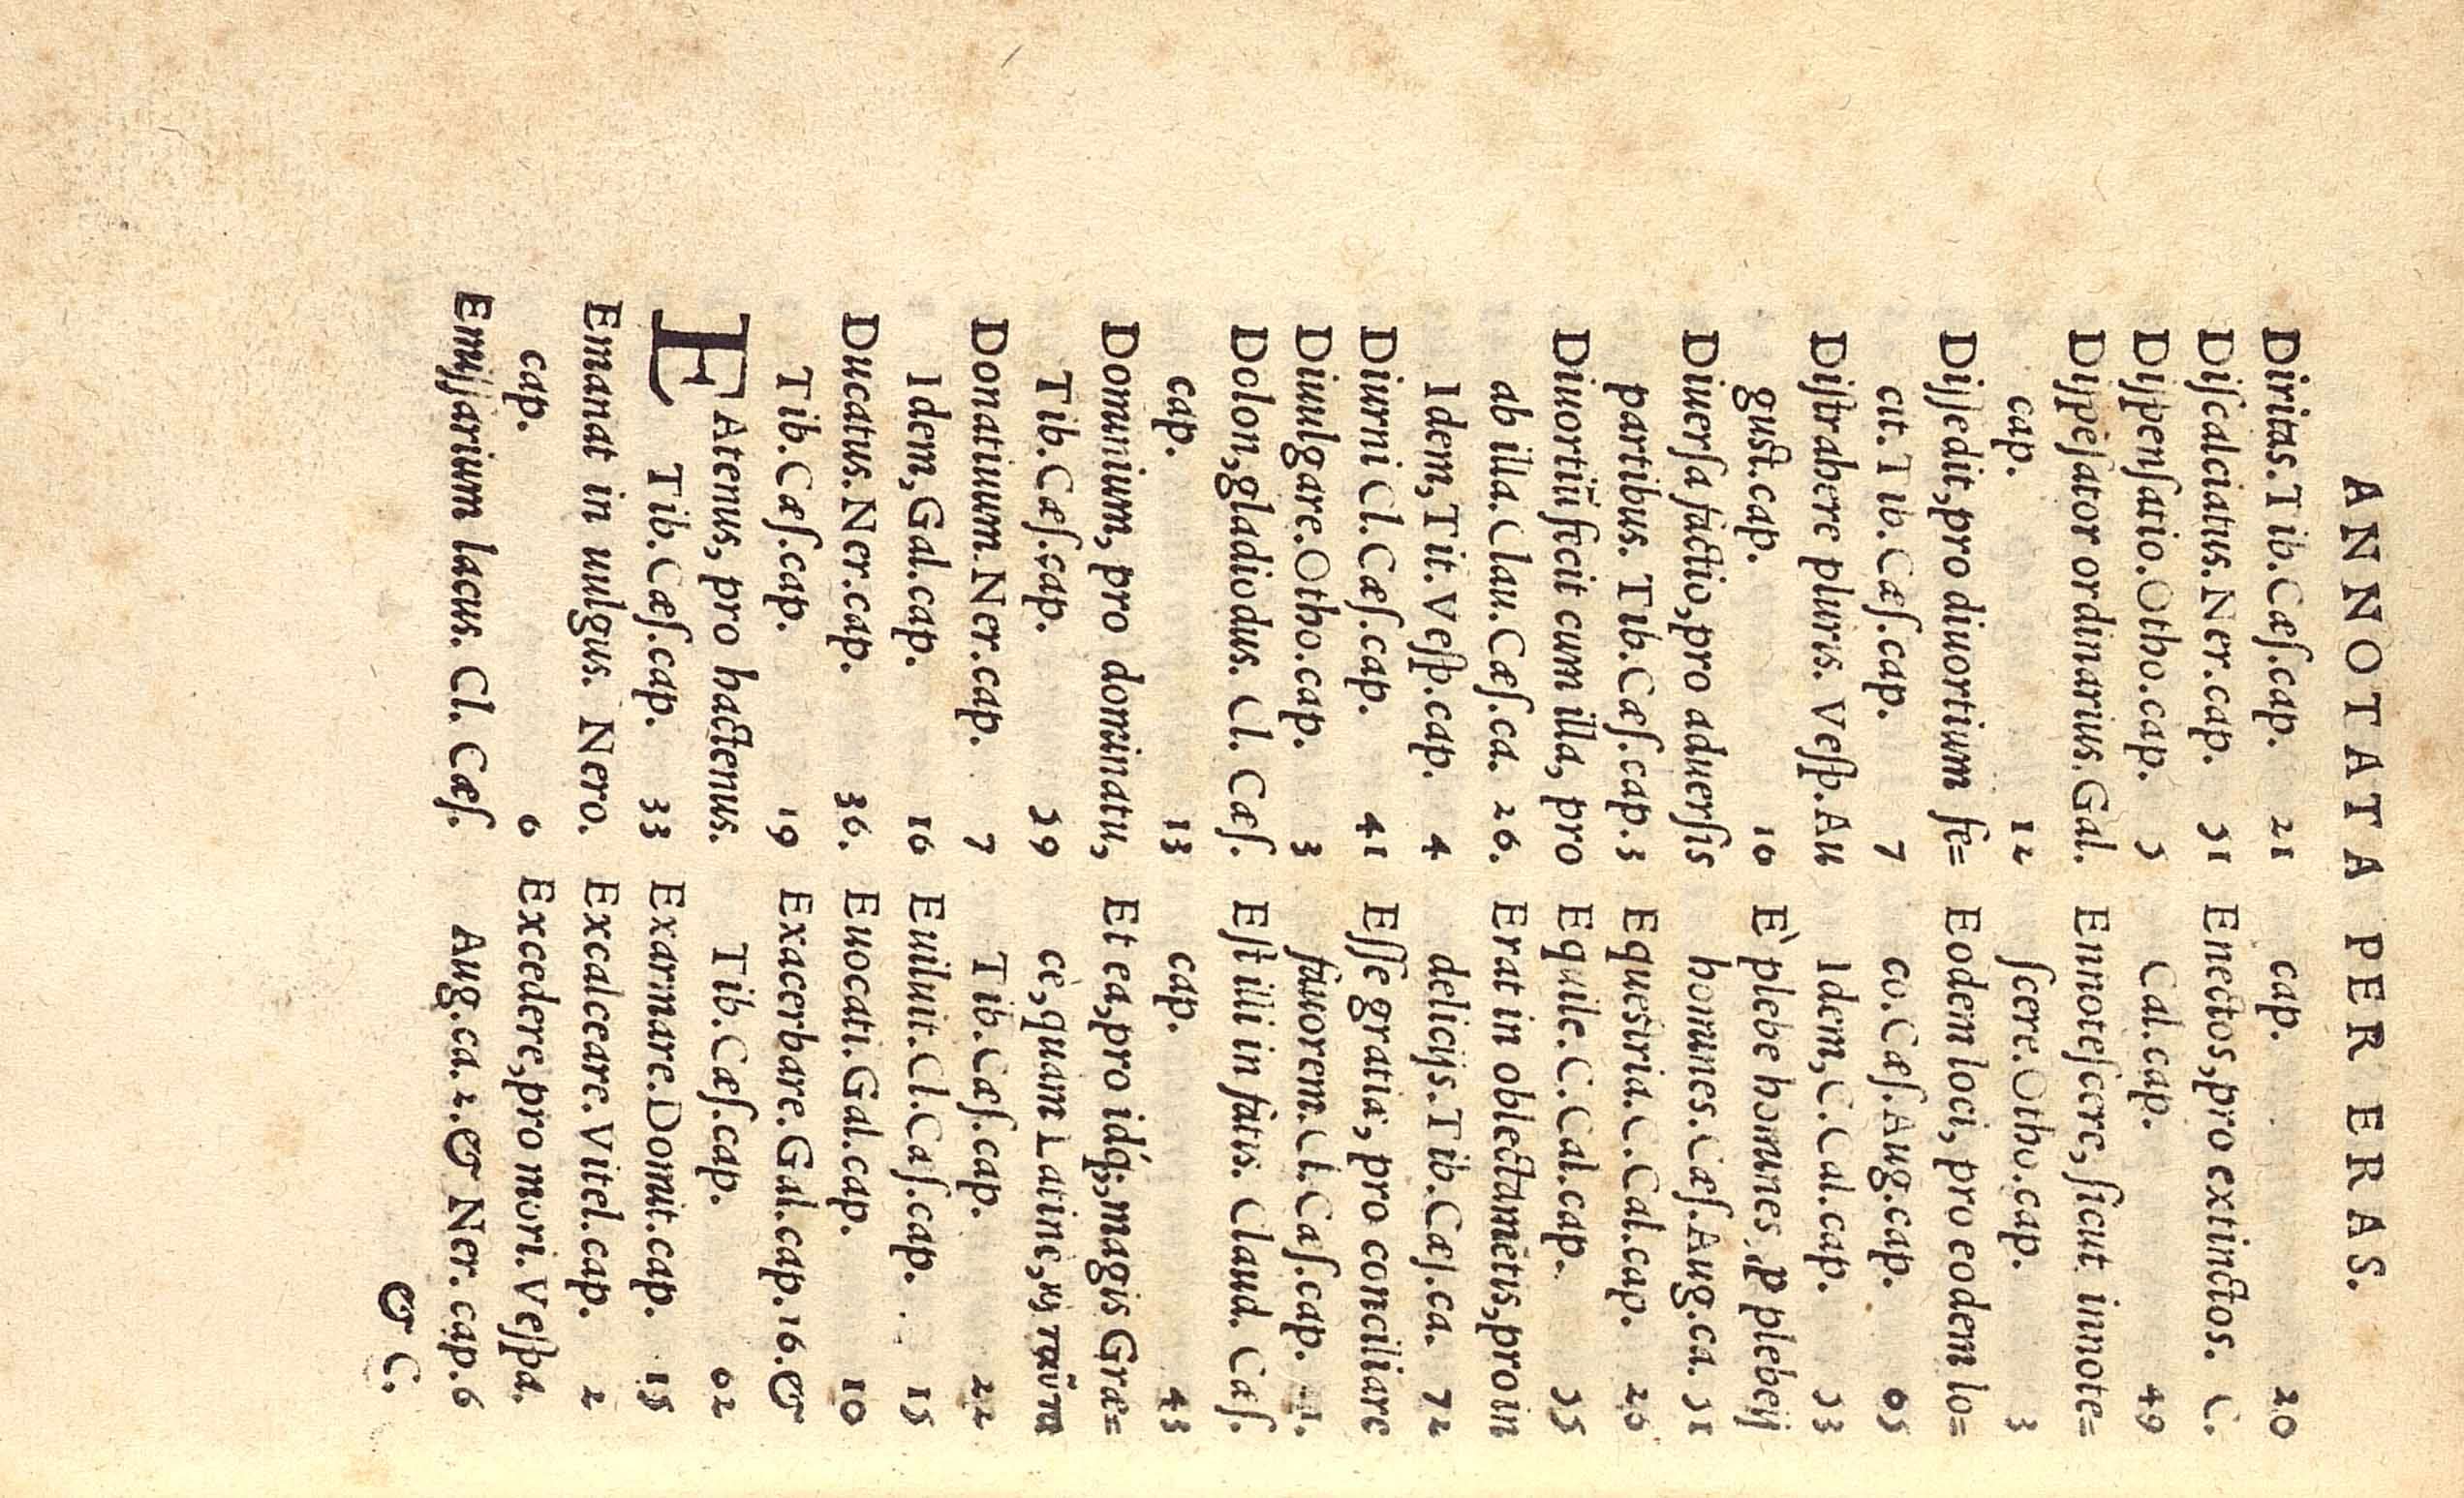 ANNOTATA PER ERAS.
Diritas.Tib.Cæſ.cap. 21
Diſcalciatus.Ner.cap. 51
Diſpenſatio.Otho.cap. 5
Diſpēſator ordinarius.Gal.
cap. 12
Diſſedit,pro diuortium fe=
cit.Tib.Cæſ.cap. 7
Diſtrahere pluris. Veſp.Au
guſt.cap. 16
Diuerſa factio,pro aduerſis
partibus. Tib.Cæſ.cap.3
Diuortiū fecit cum illa, pro
ab illa.Clau.Cæſ.ca. 26.
Idem,Tit.Veſp.cap. 4
Diurni Cl.Cæſ.cap. 41
Diuulgare.Otho.cap. 3
Dolon,gladiodus. Cl. Cæſ.
cap. 13
Dominium, pro dominatu,
Tib.Cæſ.cap. 29
Donatiuum.Ner.cap. 7
Idem,Gal.cap. 16
Ducatus.Ner.cap. 36.
Tib.Cæſ.cap. 19
EAtenus, pro hactenus.
Tib.Cæſ.cap. 33
Emanat in uulgus. Nero.
cap. 6
Emiſſarium lacus. Cl. Cæſ.
cap. 20
Enectos,pro extinctos. C.
Cal.cap. 49
Ennoteſcere,ſicut innote=
ſcere.Otho.cap. 3
Eodem loci, pro eodem lo=
co.Cæſ.Aug.cap. 65
Idem,C.Cal.cap. 53
E' plebe homines,ꝑ plebeij
homines.Cæſ.Aug.ca. 51
Equeſtria.C.Cal.cap. 26
Equile.C.Cal.cap. 55
Erat in oblectamētis,pro in
delicijs.Tib.Cæſ.ca. 72
Eſſe gratia, pro conciliare
fauorem.Cl.Cæſ.cap. 1.
Eſt illi in fatis. Claud. Cæſ.
cap. 43
Et ea,pro idq́;,magis Græ=
cè,quam Latine, ταῦτα
Tib.Cæſ.cap. 22
Euiluit.Cl.Cæſ.cap. 15
Euocati.Gal.cap. 10
Exacerbare.Gal.cap.16.&
Tib.Cæſ.cap. 62
Exarmare.Domit.cap. 15
Excalceare.Vitel.cap. 2
Excedere,pro mori.Veſpa.
Aug.ca.2.& Ner. cap.6
& C.